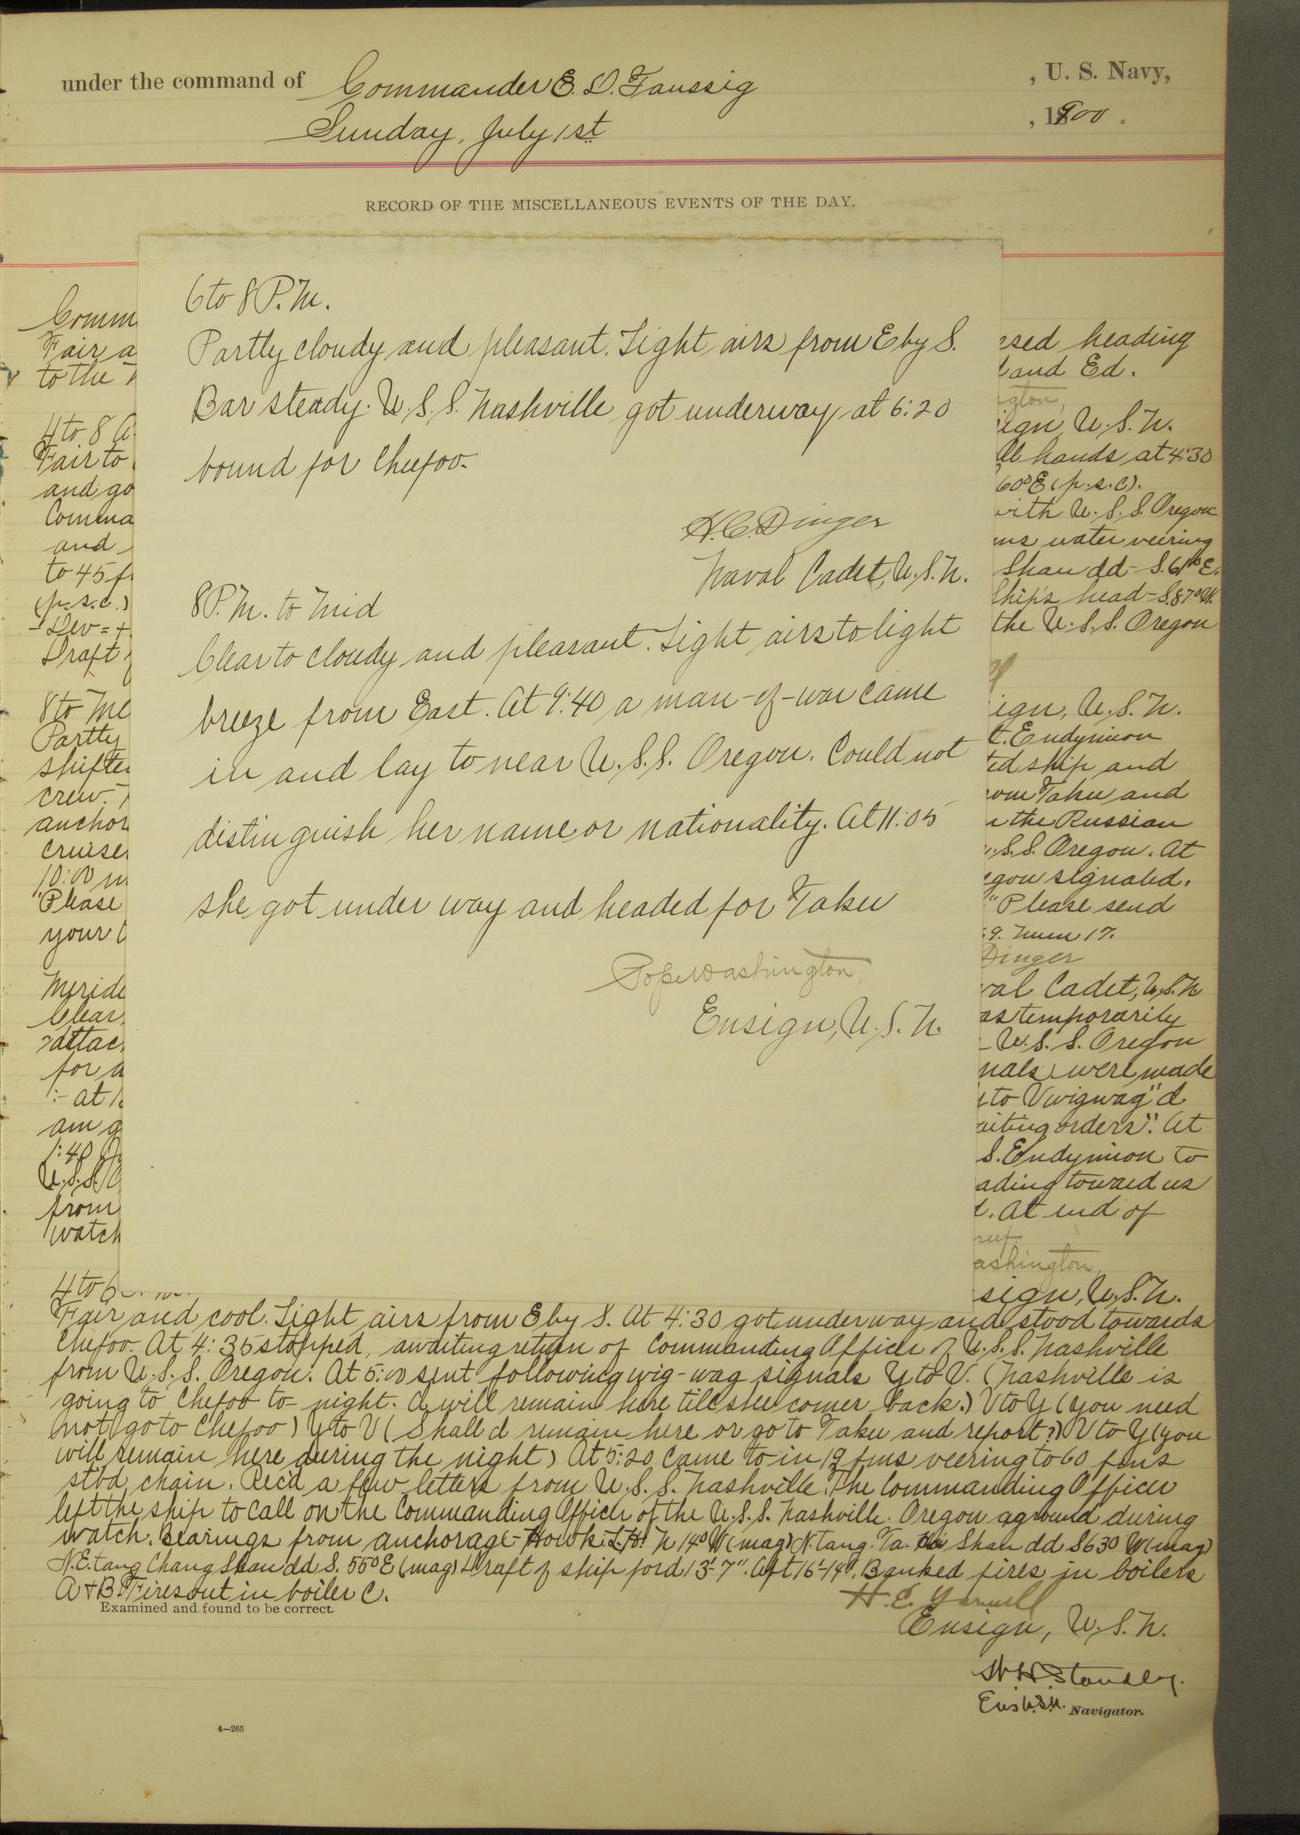 under the command of Commander E. D. Taussig , U. S. Navy,
Sunday, July 1st , 1900 .
RECORD OF THE MISCELLANEOUS EVENTS OF THE DAY.
6 to 8 P.M.
Partly cloudy and pleasant. Light airs from E by S.
Bar steady. U.S.S. Nashville got underway at 6:20
bound for Cheefoo.
H.C. Dinger
Naval Cadet, U.S.N.
8 P.M. to Mid
Clear to cloudy and pleasant. Light airs to light
breeze from East. At 9:40 a man-of-war came
in and lay to near U.S.S. Oregon. Could not
distinguish her name or nationality. At 11:05
she got under way and headed for Taku
Pope Washington,
Ensign, U.S.N.
Comm
Fair a
to the
4 to 8 A.
Fair to
and go
Comma
and
to 45 f
(p.s.c.)
Dev = +
Draft
8 to Me
Partly
shifte
crew.
anchor
cruise
10:00 m
"Please
your
Meride
Clear
attac
for a
:- at 1
am g
1:40
U.S.S.
from
watch
rsed heading
and Ed.
ington,
ign, U.S.N.
all hands at 4:30
60° E (p.s.c).
with U.S.S. Oregon
ms water veering
Shan dd - S. 61° E.
Ship's head - S. 87° W.
the U.S.S. Oregon
ign, U.S.N.
Endymion
ed ship and
rom Taku and
the Russian
U.S.S. Oregon. At
egon signaled.
"Please send
9. Num 17.
Dinger
val Cadet, U.S.N
as temporarily
U.S.S. Oregon
nals were made
to V wigwag "I
aiting orders". At
S. Endymion to
ading toward us
. At end of
ashington,
sign, U.S.N.
4 to 6
Fair and cool. Light airs from E by S. At 4:30 got underway and stood towards
Chefoo. At 4:35 stopped, awaiting return of Commanding Officer of U.S.S. Nashville
from U.S.S. Oregon. At 5:00 sent following wig-wag signals Y to V. (Nashville is
going to Chefoo to-night. I will remain here till she comes back.) V to Y (you need
not go to Chefoo) Y to V (Shall I remain here or go to Taku and report?) V to Y (you
will remain here during the night) At 5:20 came to in 12 fms veering to 60 fms
stbd chain. Rec'd a few letters from U.S.S. Nashville. The Commanding Officer
left the ship to call on the Commanding Officer of the U.S.S. Nashville. Oregon aground during
watch. Bearings from anchorage - Howki L.H. N 14° W (mag) N. tang. Ta- Shan dd S 63° W (mag)
N.E. tang Chang Shan dd S. 55° E (mag) Draft of ship ford 13'-7". Aft 16'-1". Banked fires in boilers
A & B. Fires out in boiler C.
H. E. Yarnell
Ensign, U.S.N.
Examined and found to be correct.
W H Standley.
Ens U.S.N. Navigator.
4—265